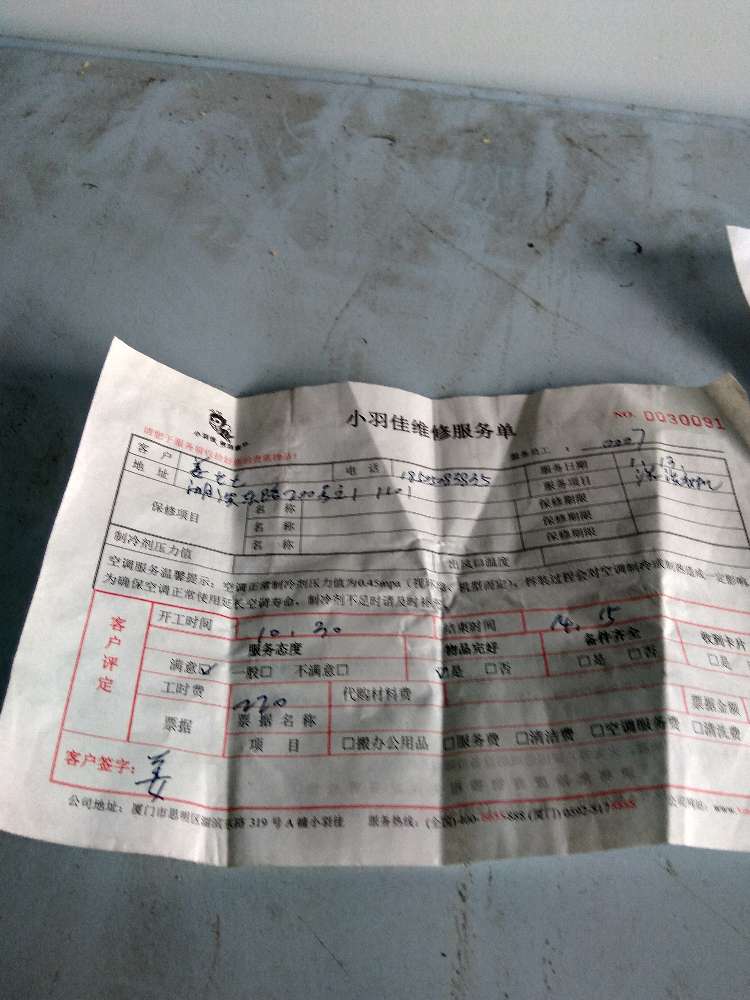 小羽佳维修服务单
NO. 0030091
小羽佳
服务员工： 0007
客户 姜女士 电话 服务日期
地址 服务项目
保修项目 名称 保修期限
名称 保修期限
名称 保修期限
制冷剂压力值 出风口温度
空调服务温馨提示：空调正常制冷剂压力值为0.45mpa（视环境、机型而定），拆装过程会对空调制冷或制热造成一定影响
为确保空调正常使用延长空调寿命，制冷剂不足时请及时补充
客户评定
开工时间 10.30 结束时间 14.15
服务态度 物品完好 备件齐全 收到卡片
满意☑ 一般□ 不满意□ ☑是 □否 □是 □否 □是
工时费 220 代购材料费
票据 票据名称 票据金额
项目 □搬办公用品 □服务费 □清洁费 □空调服务费 □清洗费
客户签字： 姜
公司地址：厦门市思明区湖滨东路 319 号 A 幢小羽佳 服务热线：(全国)400-8855-885 (厦门) 0592-8175858 公司网址：www.